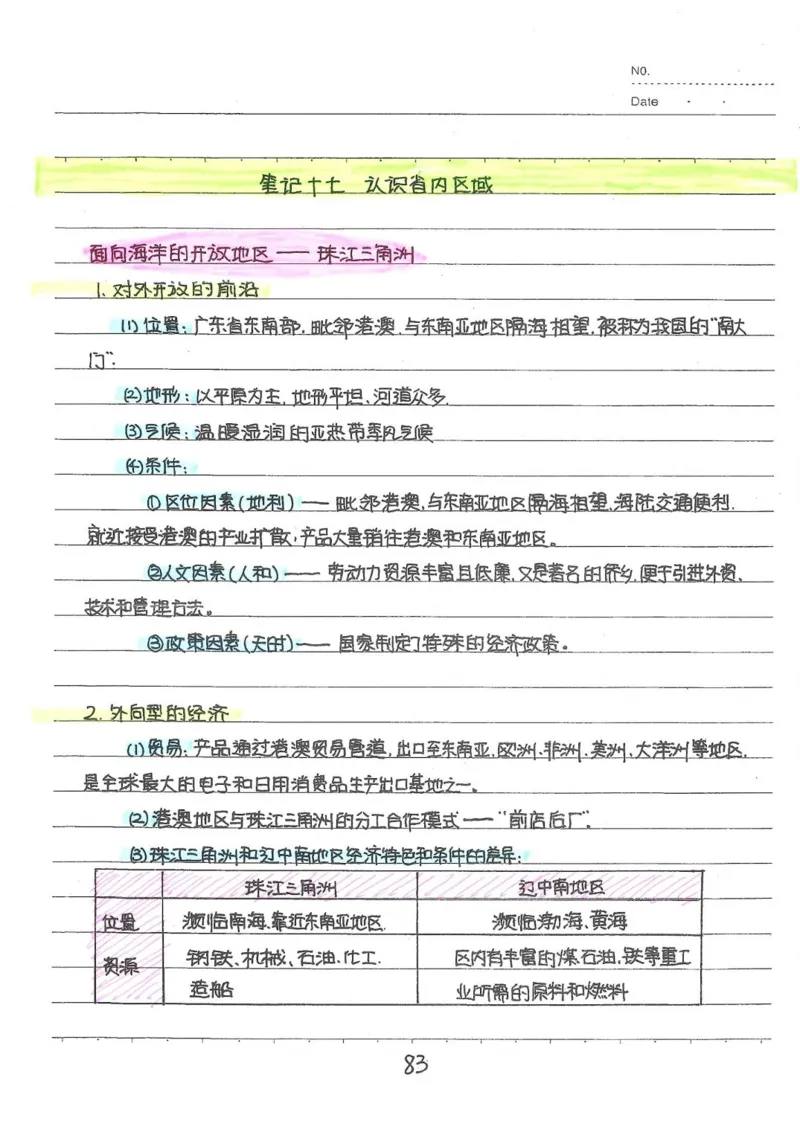 NO.
Date
笔记十七 认识省内区域
面向海洋的开放地区——珠江三角洲
1. 对外开放的前沿
(1)位置：广东省东南部，毗邻港澳，与东南亚地区隔海相望，被称为我国的“南大
门”.
(2)地形：以平原为主，地形平坦、河道众多.
(3)气候：温暖湿润的亚热带季风气候
(4)条件：
①区位因素(地利)——毗邻港澳，与东南亚地区隔海相望，海陆交通便利.
就近接受港澳的产业扩散，产品大量销往港澳和东南亚地区。
②人文因素(人和)——劳动力资源丰富且低廉，又是著名的侨乡，便于引进外资、
技术和管理方法。
③政策因素(天时)——国家制定了特殊的经济政策。
2. 外向型的经济
(1)贸易：产品通过港澳贸易管道，出口至东南亚、欧洲、非洲、美洲、大洋洲等地区，
是全球最大的电子和日用消费品生产出口基地之一。
(2)港澳地区与珠江三角洲的分工合作模式——“前店后厂”.
(3)珠江三角洲和辽中南地区经济特色和条件的差异：
珠江三角洲 辽中南地区
位置 濒临南海、靠近东南亚地区. 濒临渤海、黄海
资源 钢铁、机械、石油、化工. 区内有丰富的煤、石油、铁等重工
造船 业所需的原料和燃料
83